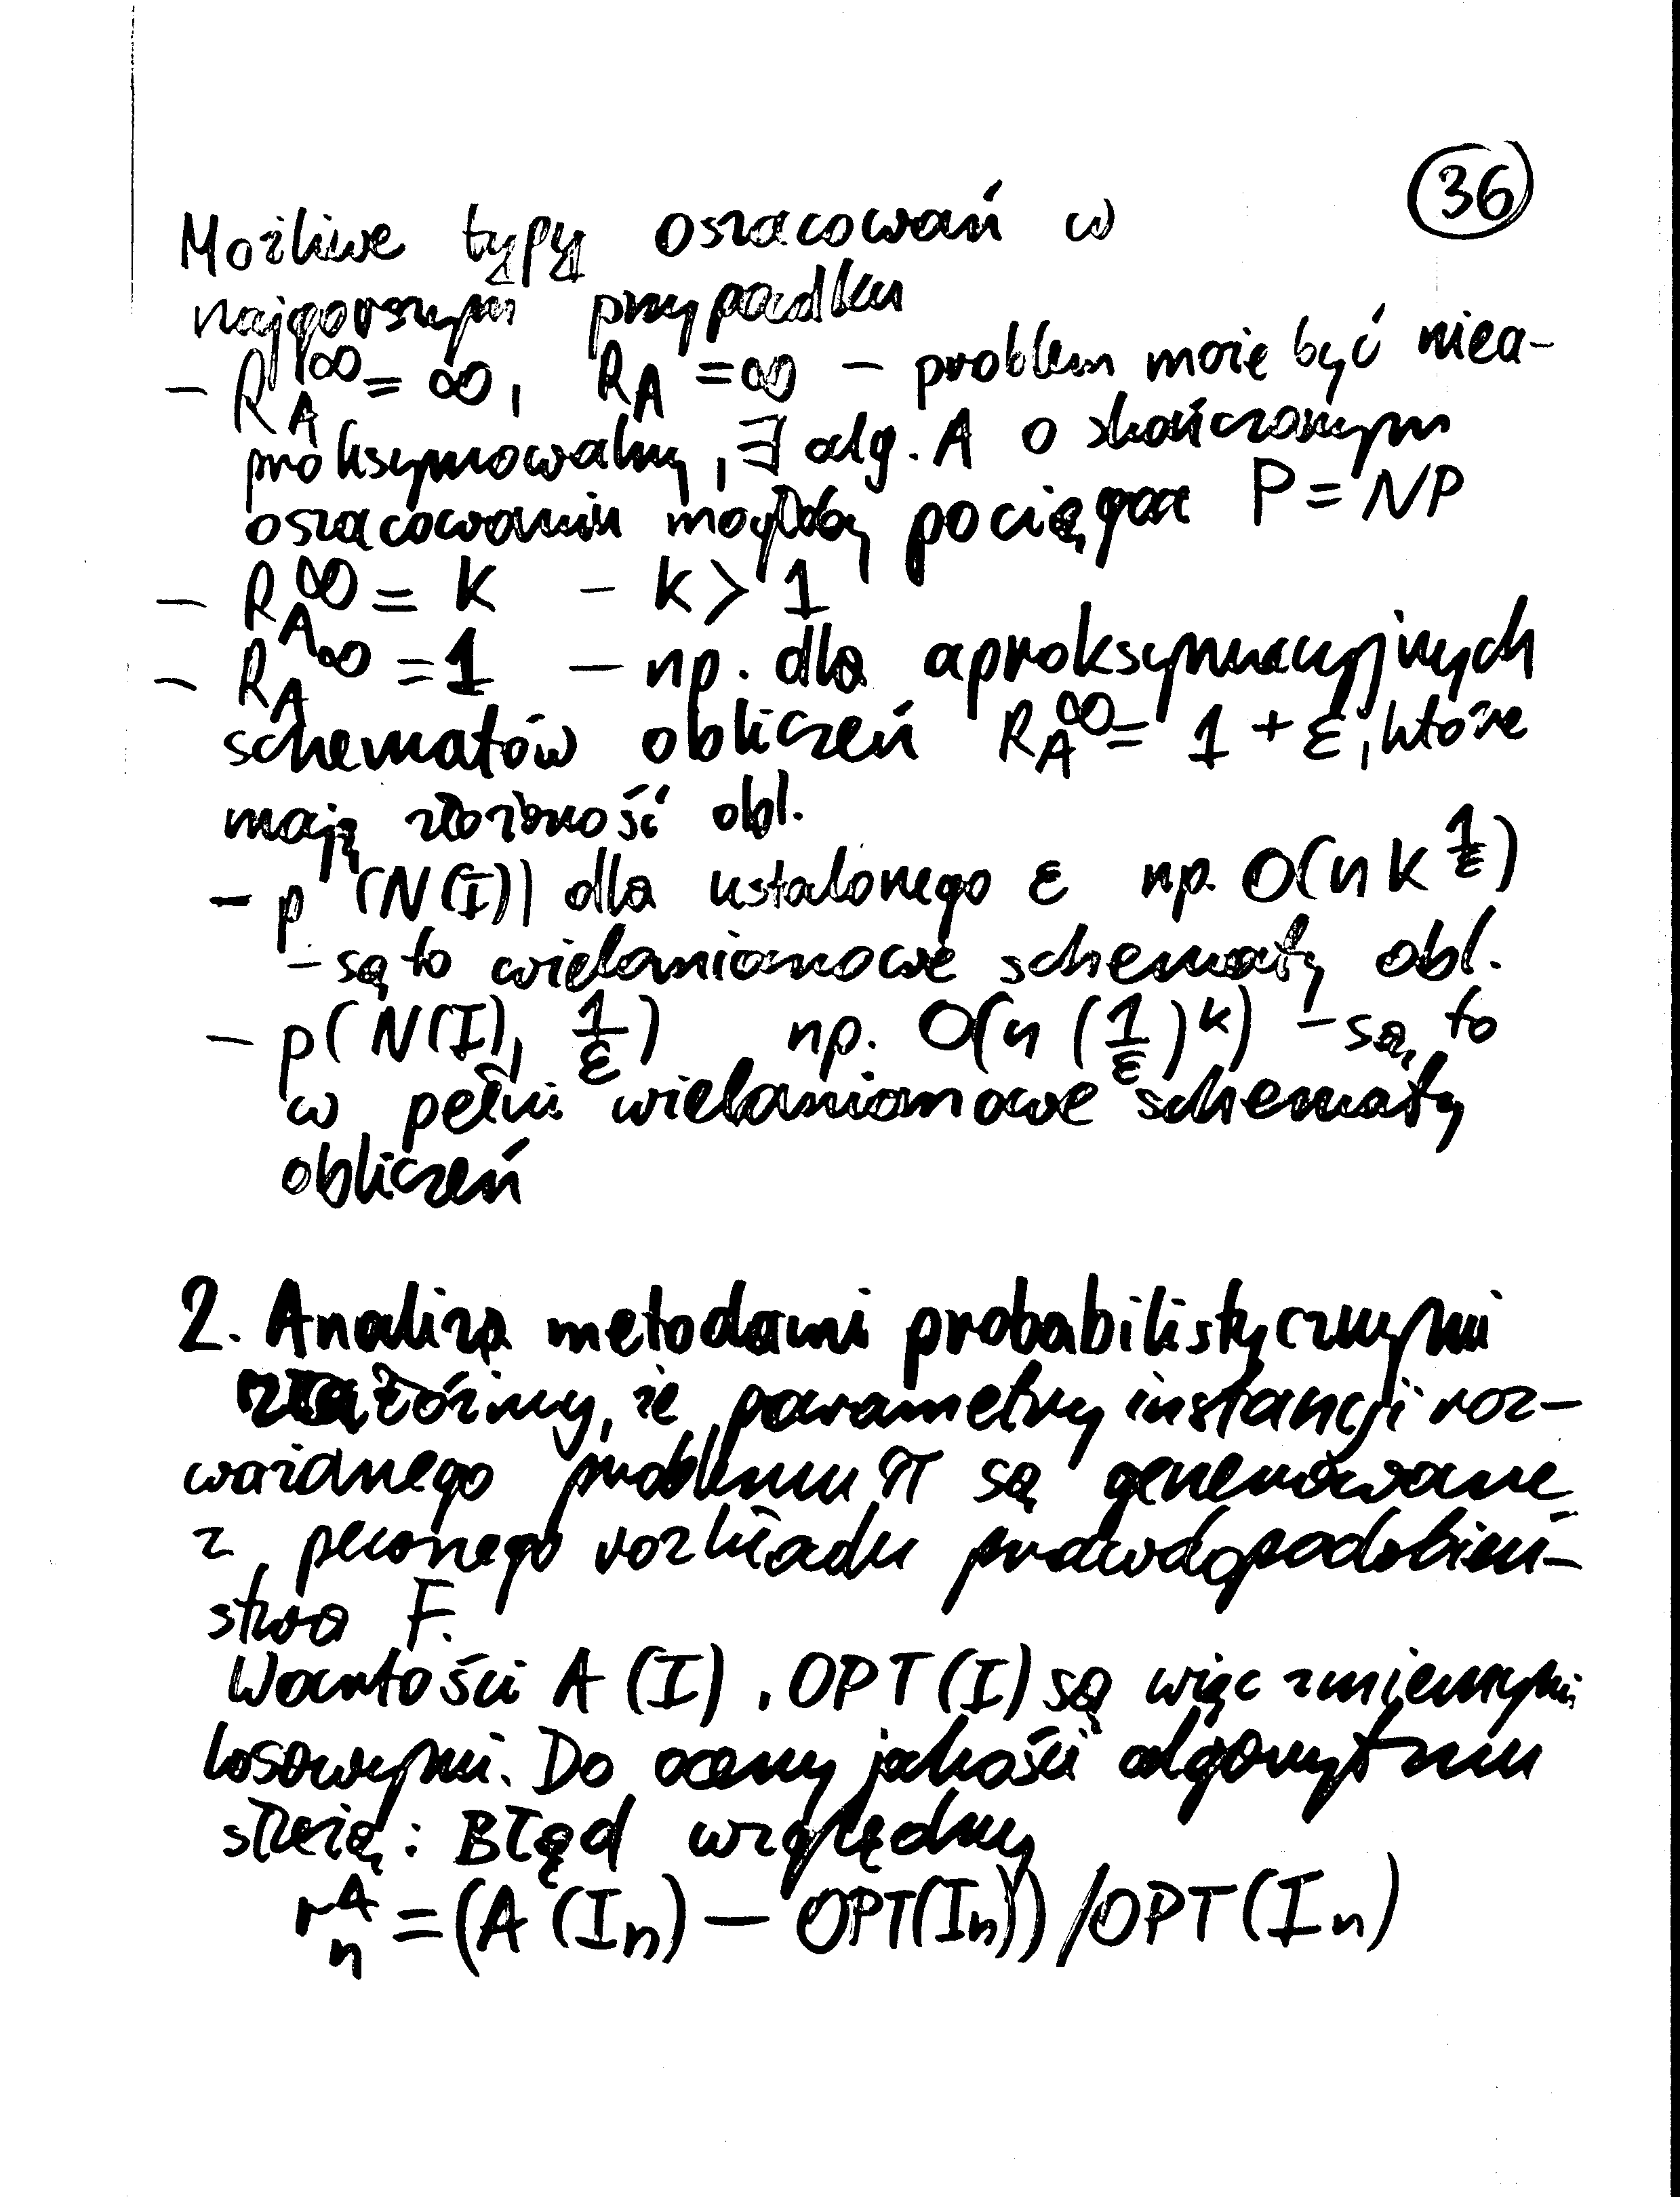 36
Możliwe typy oszacowań w
najgorszym przypadku
- R_A^∞ = ∞, R_A = ∞ - problem może być niea-
proksymowalny, ∃ alg. A o skończonym
oszacowaniu mógłby pociągać P = NP
- R_A^∞ = k - k > 1
- R_A^∞ = 1 - np. dla aproksymacyjnych
schematów obliczeń R_A^∞ = 1 + ε, które
mają złożoność obl.
- p (N(I)) dla ustalonego ε np. O(n k^{1/ε})
- są to wielomianowe schematy obl.
- p(N(I), 1/ε) np. O(n (1/ε)^k) - są to
w pełni wielomianowe schematy
obliczeń
2. Analiza metodami probabilistycznymi
załóżmy, że parametry instancji roz-
ważanego problemu π są generowane
z pewnego rozkładu prawdopodobień-
stwa F.
Wartości A (I), OPT (I) są więc zmiennymi
losowymi. Do oceny jakości algorytmu
służą: Błąd względny
r_n^A = (A (I_n) - OPT(I_n)) / OPT (I_n)